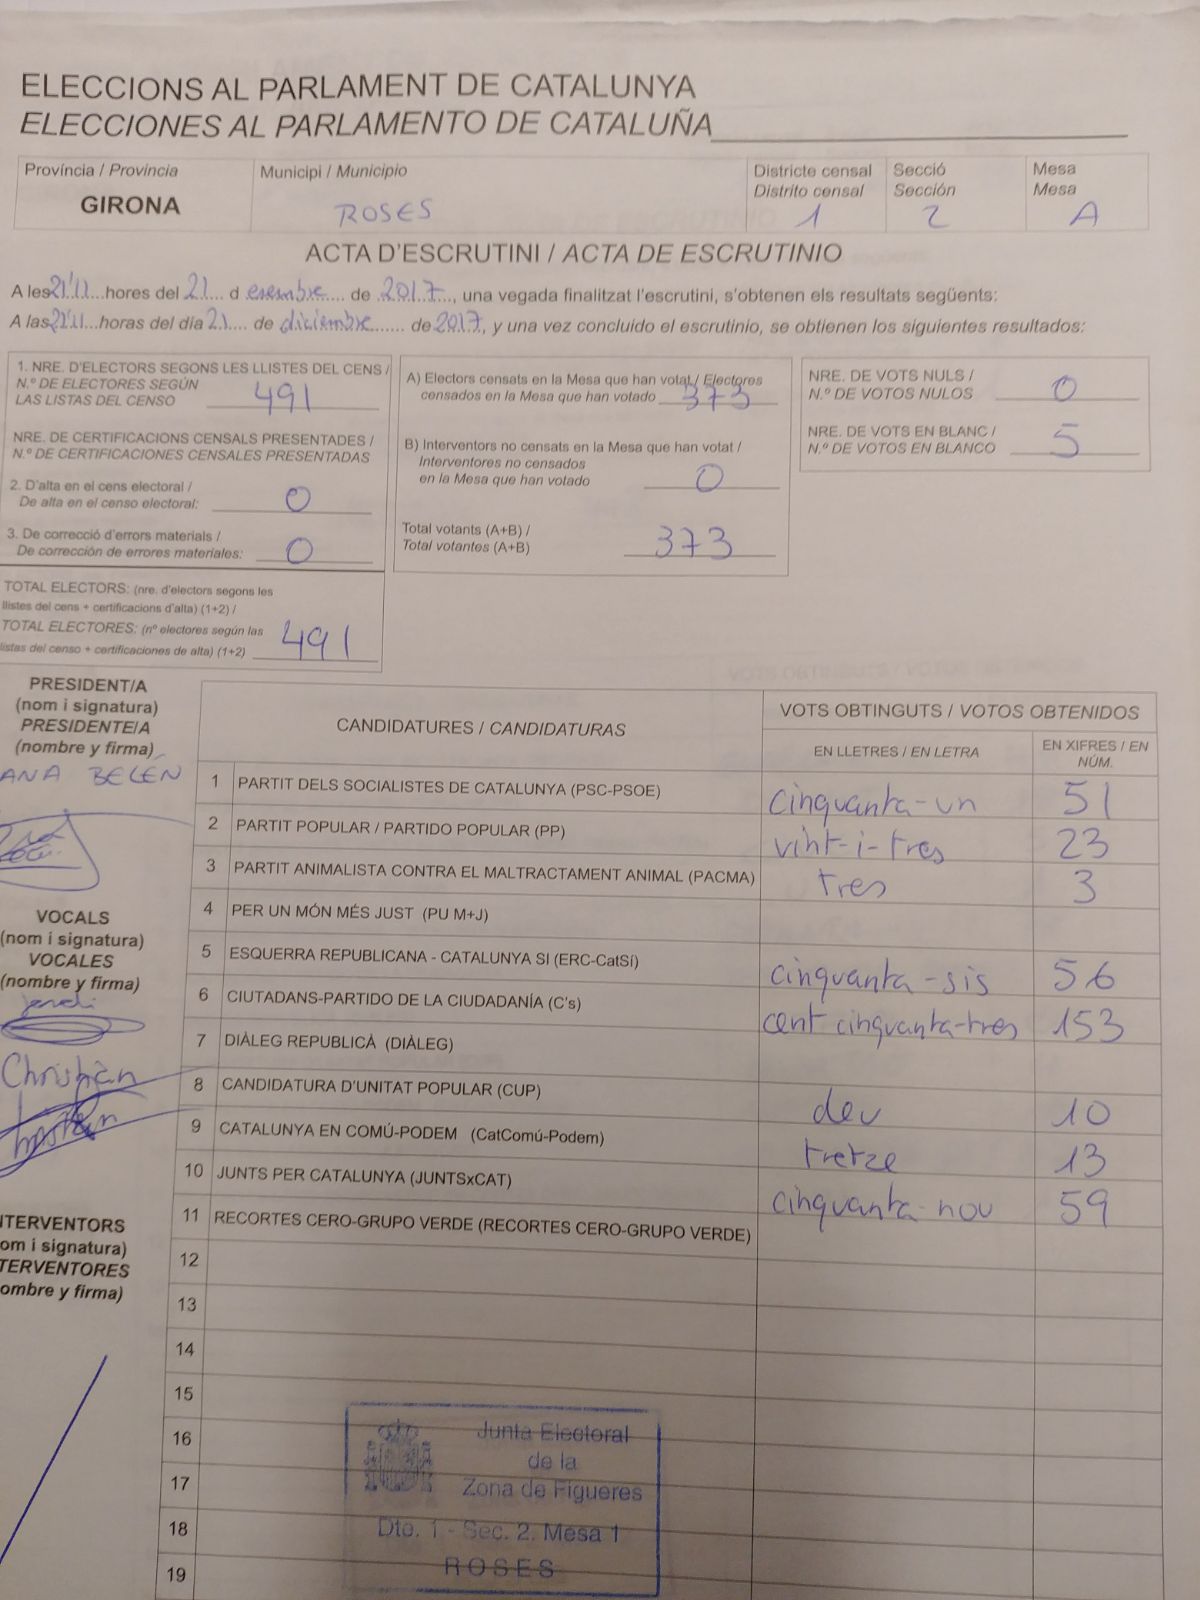 ELECCIONS AL PARLAMENT DE CATALUNYA
ELECCIONES AL PARLAMENTO DE CATALUÑA
Província / Provincia
GIRONA
Municipi / Municipio
ROSES
Districte censal
Distrito censal
1
Secció
Sección
2
Mesa
Mesa
A
ACTA D'ESCRUTINI / ACTA DE ESCRUTINIO
A les 21'11 hores del 21 d esembre de 2017, una vegada finalitzat l'escrutini, s'obtenen els resultats següents:
A las 21'11 horas del día 21 de diciembre de 2017, y una vez concluido el escrutinio, se obtienen los siguientes resultados:
1. NRE. D'ELECTORS SEGONS LES LLISTES DEL CENS /
N.º DE ELECTORES SEGÚN
LAS LISTAS DEL CENSO 491
NRE. DE CERTIFICACIONS CENSALS PRESENTADES /
N.º DE CERTIFICACIONES CENSALES PRESENTADAS
2. D'alta en el cens electoral /
De alta en el censo electoral: 0
3. De correcció d'errors materials /
De corrección de errores materiales: 0
TOTAL ELECTORS: (nre. d'electors segons les
llistes del cens + certificacions d'alta) (1+2) /
TOTAL ELECTORES: (nº electores según las
listas del censo + certificaciones de alta) (1+2) 491
A) Electors censats en la Mesa que han votat / Electores
censados en la Mesa que han votado 373
B) Interventors no censats en la Mesa que han votat /
Interventores no censados
en la Mesa que han votado 0
Total votants (A+B) /
Total votantes (A+B) 373
NRE. DE VOTS NULS /
N.º DE VOTOS NULOS 0
NRE. DE VOTS EN BLANC /
N.º DE VOTOS EN BLANCO 5
PRESIDENT/A
(nom i signatura)
PRESIDENTE/A
(nombre y firma)
ANA BELÉN
VOCALS
(nom i signatura)
VOCALES
(nombre y firma)
Christian
NTERVENTORS
om i signatura)
TERVENTORES
ombre y firma)
CANDIDATURES / CANDIDATURAS
VOTS OBTINGUTS / VOTOS OBTENIDOS
EN LLETRES / EN LETRA
EN XIFRES / EN
NÚM.
1 PARTIT DELS SOCIALISTES DE CATALUNYA (PSC-PSOE) cinquanta-un 51
2 PARTIT POPULAR / PARTIDO POPULAR (PP) vint-i-tres 23
3 PARTIT ANIMALISTA CONTRA EL MALTRACTAMENT ANIMAL (PACMA) tres 3
4 PER UN MÓN MÉS JUST (PU M+J)
5 ESQUERRA REPUBLICANA - CATALUNYA SI (ERC-CatSí) cinquanta-sis 56
6 CIUTADANS-PARTIDO DE LA CIUDADANÍA (C's) cent cinquanta-tres 153
7 DIÀLEG REPUBLICÀ (DIÀLEG)
8 CANDIDATURA D'UNITAT POPULAR (CUP) deu 10
9 CATALUNYA EN COMÚ-PODEM (CatComú-Podem) tretze 13
10 JUNTS PER CATALUNYA (JUNTSxCAT) cinquanta-nou 59
11 RECORTES CERO-GRUPO VERDE (RECORTES CERO-GRUPO VERDE)
12
13
14
15
16
17
18
19
Junta Electoral
de la
Zona de Figueres
Dte. 1 - Sec. 2. Mesa 1
ROSES